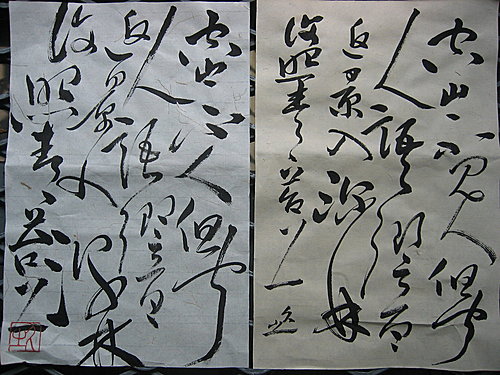 空山不見人但聞
人語響
返景入深林
復照青苔上
空山不人但聞
人語響
返景入深林
復照青苔上